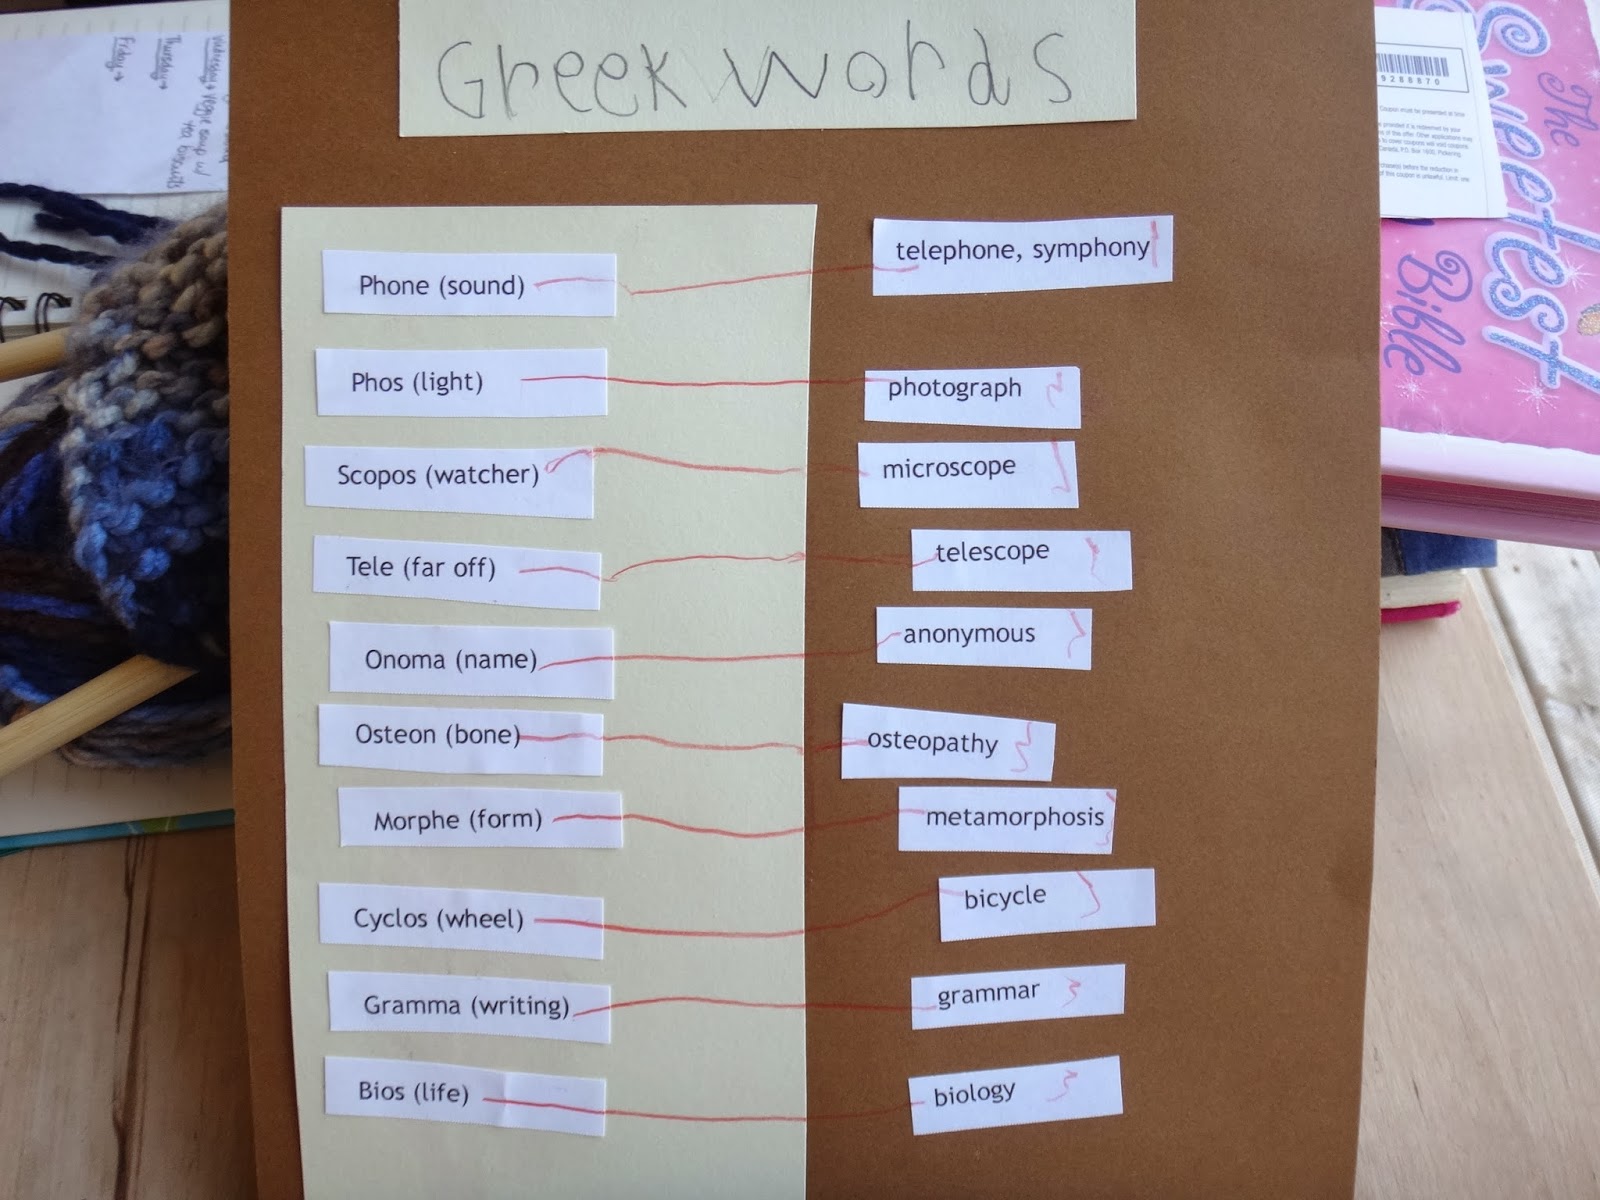 Greek words
Phone (sound)
telephone, symphony
Phos (light)
photograph
Scopos (watcher)
microscope
Tele (far off)
telescope
Onoma (name)
anonymous
Osteon (bone)
osteopathy
Morphe (form)
metamorphosis
Cyclos (wheel)
bicycle
Gramma (writing)
grammar
Bios (life)
biology
Thursday
Friday
Veggie soup w/
tea biscuits
The
Sweetest
Bible
9288870